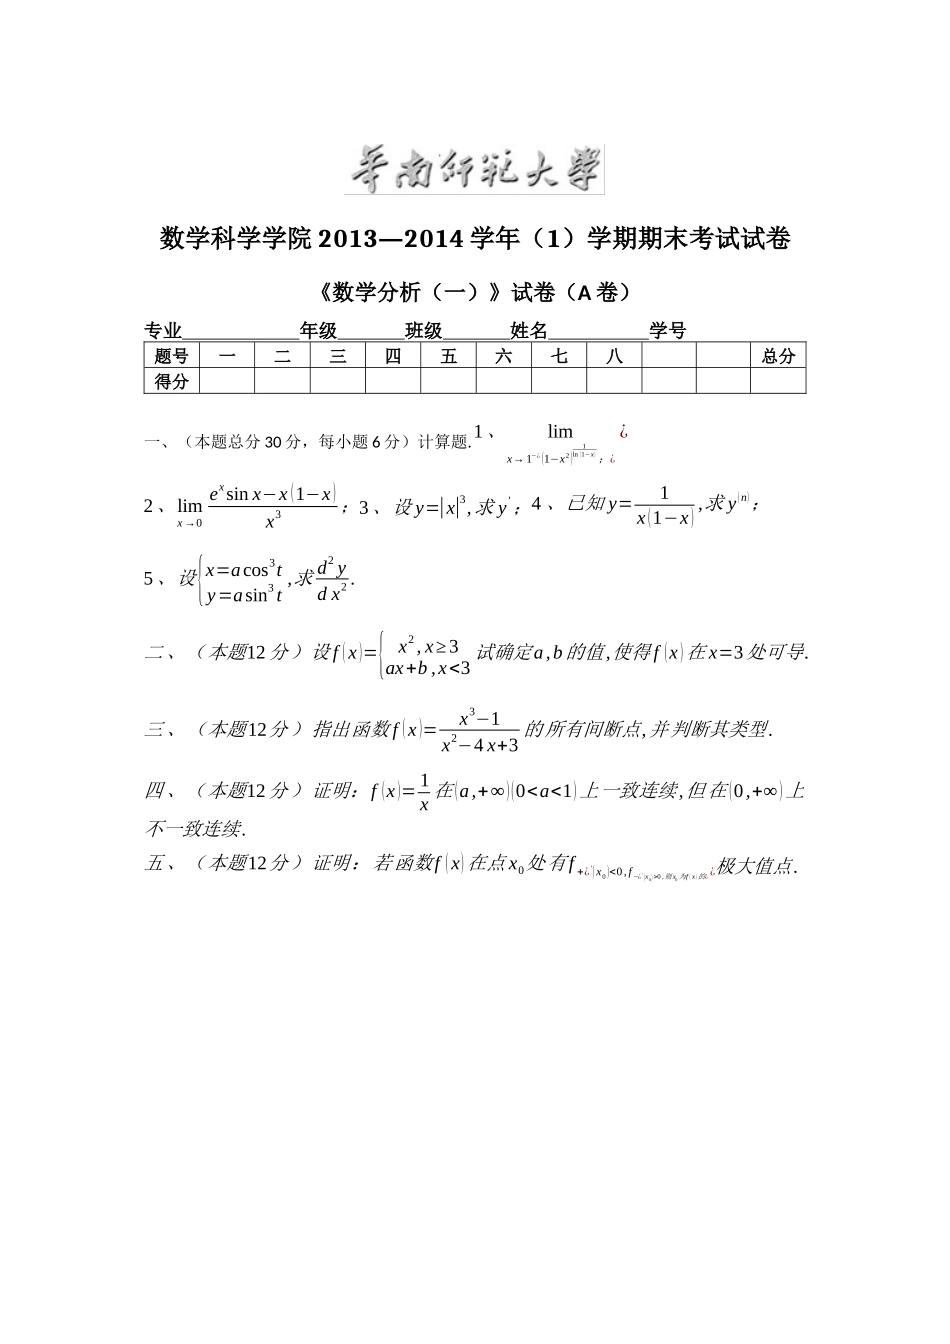 华南师范大学
数学科学学院 2013—2014 学年（1）学期期末考试试卷
《数学分析（一）》试卷（A 卷）
专业______________年级________班级________姓名____________学号
题号 一 二 三 四 五 六 七 八 总分
得分
一、（本题总分 30 分，每小题 6 分）计算题. 1 、 lim x→1^{-¿(1−x^2)^{1/ln(1−x)} ; ¿} ¿
2 、 lim x→0 (e^x sin x−x(1−x))/x^3 ; 3 、设 y=|x|^3 ,求 y' ; 4 、已知 y= 1/(x(1−x)) ,求 y^(n) ;
5 、设 { x=a cos^3 t y=a sin^3 t ,求 d^2 y/d x^2 .
二、（本题12 分）设 f(x)={ x^2 , x≥3 ax+b , x<3 试确定 a ,b 的值 ,使得 f(x) 在 x=3 处可导.
三、（本题12 分）指出函数 f(x)= (x^3−1)/(x^2−4x+3) 的所有间断点 ,并判断其类型.
四、（本题12 分）证明：f(x)= 1/x 在(a,+∞)(0<a<1)上一致连续 ,但在(0,+∞)上
不一致连续.
五、（本题12 分）证明：若函数 f(x) 在点 x_0 处有 f_{+¿'(x_0)<0, f_{−¿'(x_0)>0 ,则 x_0 为 f(x) 的¿} ¿} 极大值点.